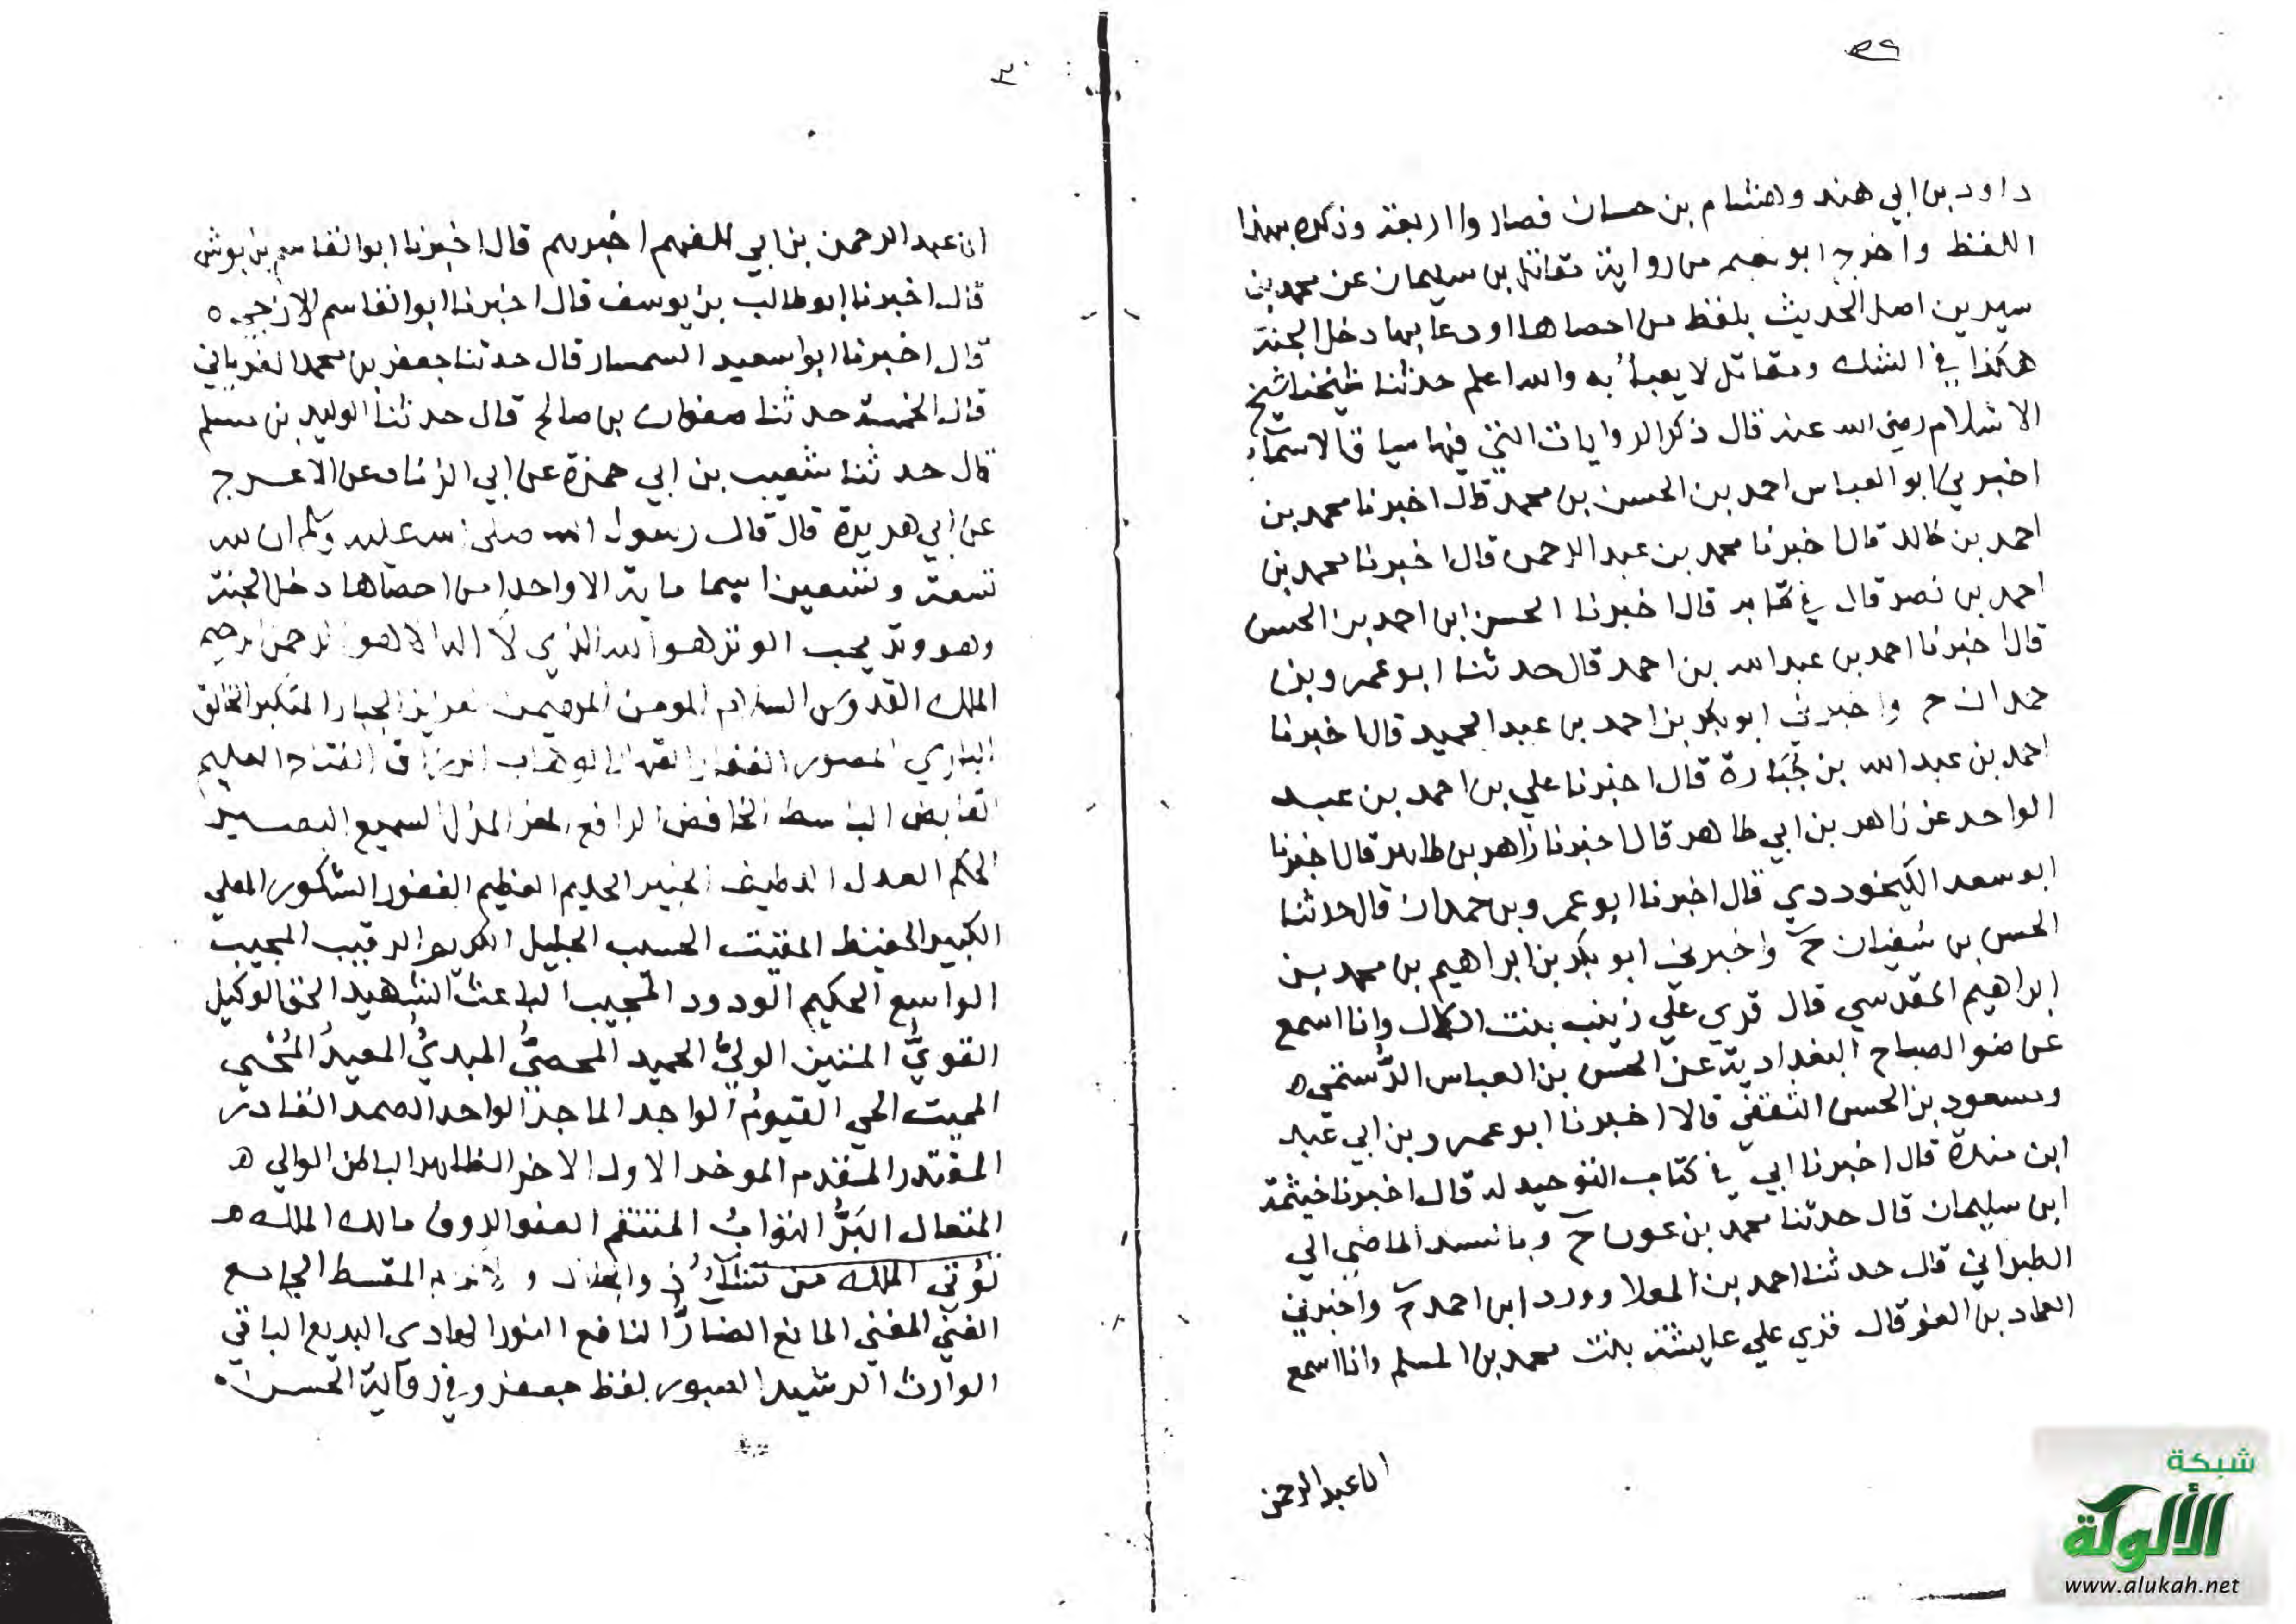 ٢٩
داود بن ابي هند وهشام بن حسان فصاروا اربعة وذكره بهذا
اللفظ واخرج ابو نعيم من رواية مقاتل بن سليمان عن محمد بن
سيرين اصل الحديث بلفظ من احصاها او دعا بها دخل الجنة
هكذا في الشك ومقاتل لا يعبأ به والله اعلم حدثنا شيخنا شيخ
الاسلام رضي الله عنه قال ذكر الروايات التي فيها سياق الاسماء
اخبرني ابو العباس احمد بن الحسن بن محمد قال اخبرنا محمد بن
احمد بن خالد قال اخبرنا محمد بن عبد الرحمن قال اخبرنا محمد بن
احمد بن نصر قال في كتابه قال اخبرنا الحسن ابن احمد بن الحسن
قال اخبرنا احمد بن عبد الله بن احمد قال حدثنا ابو عمرو بن
حمدان ح واخبرني ابو بكر بن احمد بن عبد الحميد قال اخبرنا
احمد بن عبد الله بن جبارة قال اخبرنا علي بن احمد بن عبد
الواحد عن زاهر بن ابي طاهر قال اخبرنا زاهر بن طاهر قال اخبرنا
ابو سعد الكيخرودي قال اخبرنا ابو عمرو بن حمدان قال حدثنا
الحسن بن سفيان ح واخبرني ابو بكر بن ابراهيم بن محمد بن
ابراهيم المقدسي قال قري علي زينب بنت الكمال وانا اسمع
عن ضو الصباح البغدادية عن الحسن بن العباس الرستمي ه
ومسعود بن الحسن الثقفي قالا اخبرنا ابو عمرو بن ابي عبد
ابن مندة قال اخبرنا ابي في كتاب التوحيد له قال اخبرنا خيثمة
ابن سليمان قال حدثنا محمد بن عوف ح وبالسند الماضي الي
الطبراني قال حدثنا احمد بن المعلا وورد ابن احمد ح واخبرني
العماد بن العز قال قري علي عايشة بنت محمد بن المسلم وانا اسمع
ان عبد الرحمن
٣٠
ان عبد الرحمن بن ابي الفهم اخبرهم قال اخبرنا ابو القاسم بن بوش
قال اخبرنا ابو طالب بن يوسف قال اخبرنا ابو القاسم الازجي ه
قال اخبرنا ابو سعيد السمسار قال حدثنا جعفر بن محمد الفريابي
قال الخمسة حدثنا صفوان بن صالح قال حدثنا الوليد بن مسلم
قال حدثنا شعيب بن ابي حمزة عن ابي الزناد عن الاعرج
عن ابي هريرة قال قال رسول الله صلى الله عليه وسلم ان لله
تسعة وتسعين اسما ماية الا واحدا من احصاها دخل الجنة
وهو وتر يحب الوتر هو الله الذي لا اله الا هو الرحمن الرحيم
الملك القدوس السلام المومن المهيمن العزيز الجبار المتكبر الخالق
الباري المصور الغفار القهار الوهاب الرزاق الفتاح العليم
القابض الباسط الخافض الرافع المعز المذل السميع البصير
الحكم العدل اللطيف الخبير الحليم العظيم الغفور الشكور العلي
الكبير الحفيظ المقيت الحسيب الجليل الكريم الرقيب المجيب
الواسع الحكيم الودود المجيب الباعث الشهيد الحق الوكيل
القويُّ المتين الوليُّ الحميد المحصيُّ المبديُّ المعيدُ المُحْيي
المميت الحي القيومُ الواجد الماجدُ الواحد الصمد القادر
المقتدر المقدم الموخر الاول الاخر الظاهر الباطن الوالي ه
المتعال البَرُّ التوابُ المنتقم العفو الروف مالك الملك ه
تؤتي الملك من تشاء ذو الجلال والاكرام المقسط الجامع
الغني المغني المانع الضارُّ النافع النور الهادي البديع الباقي
الوارث الرشيد الصبور بلفظ جعفر وفي رواية الحسن
شبكة
الألوكة
www.alukah.net